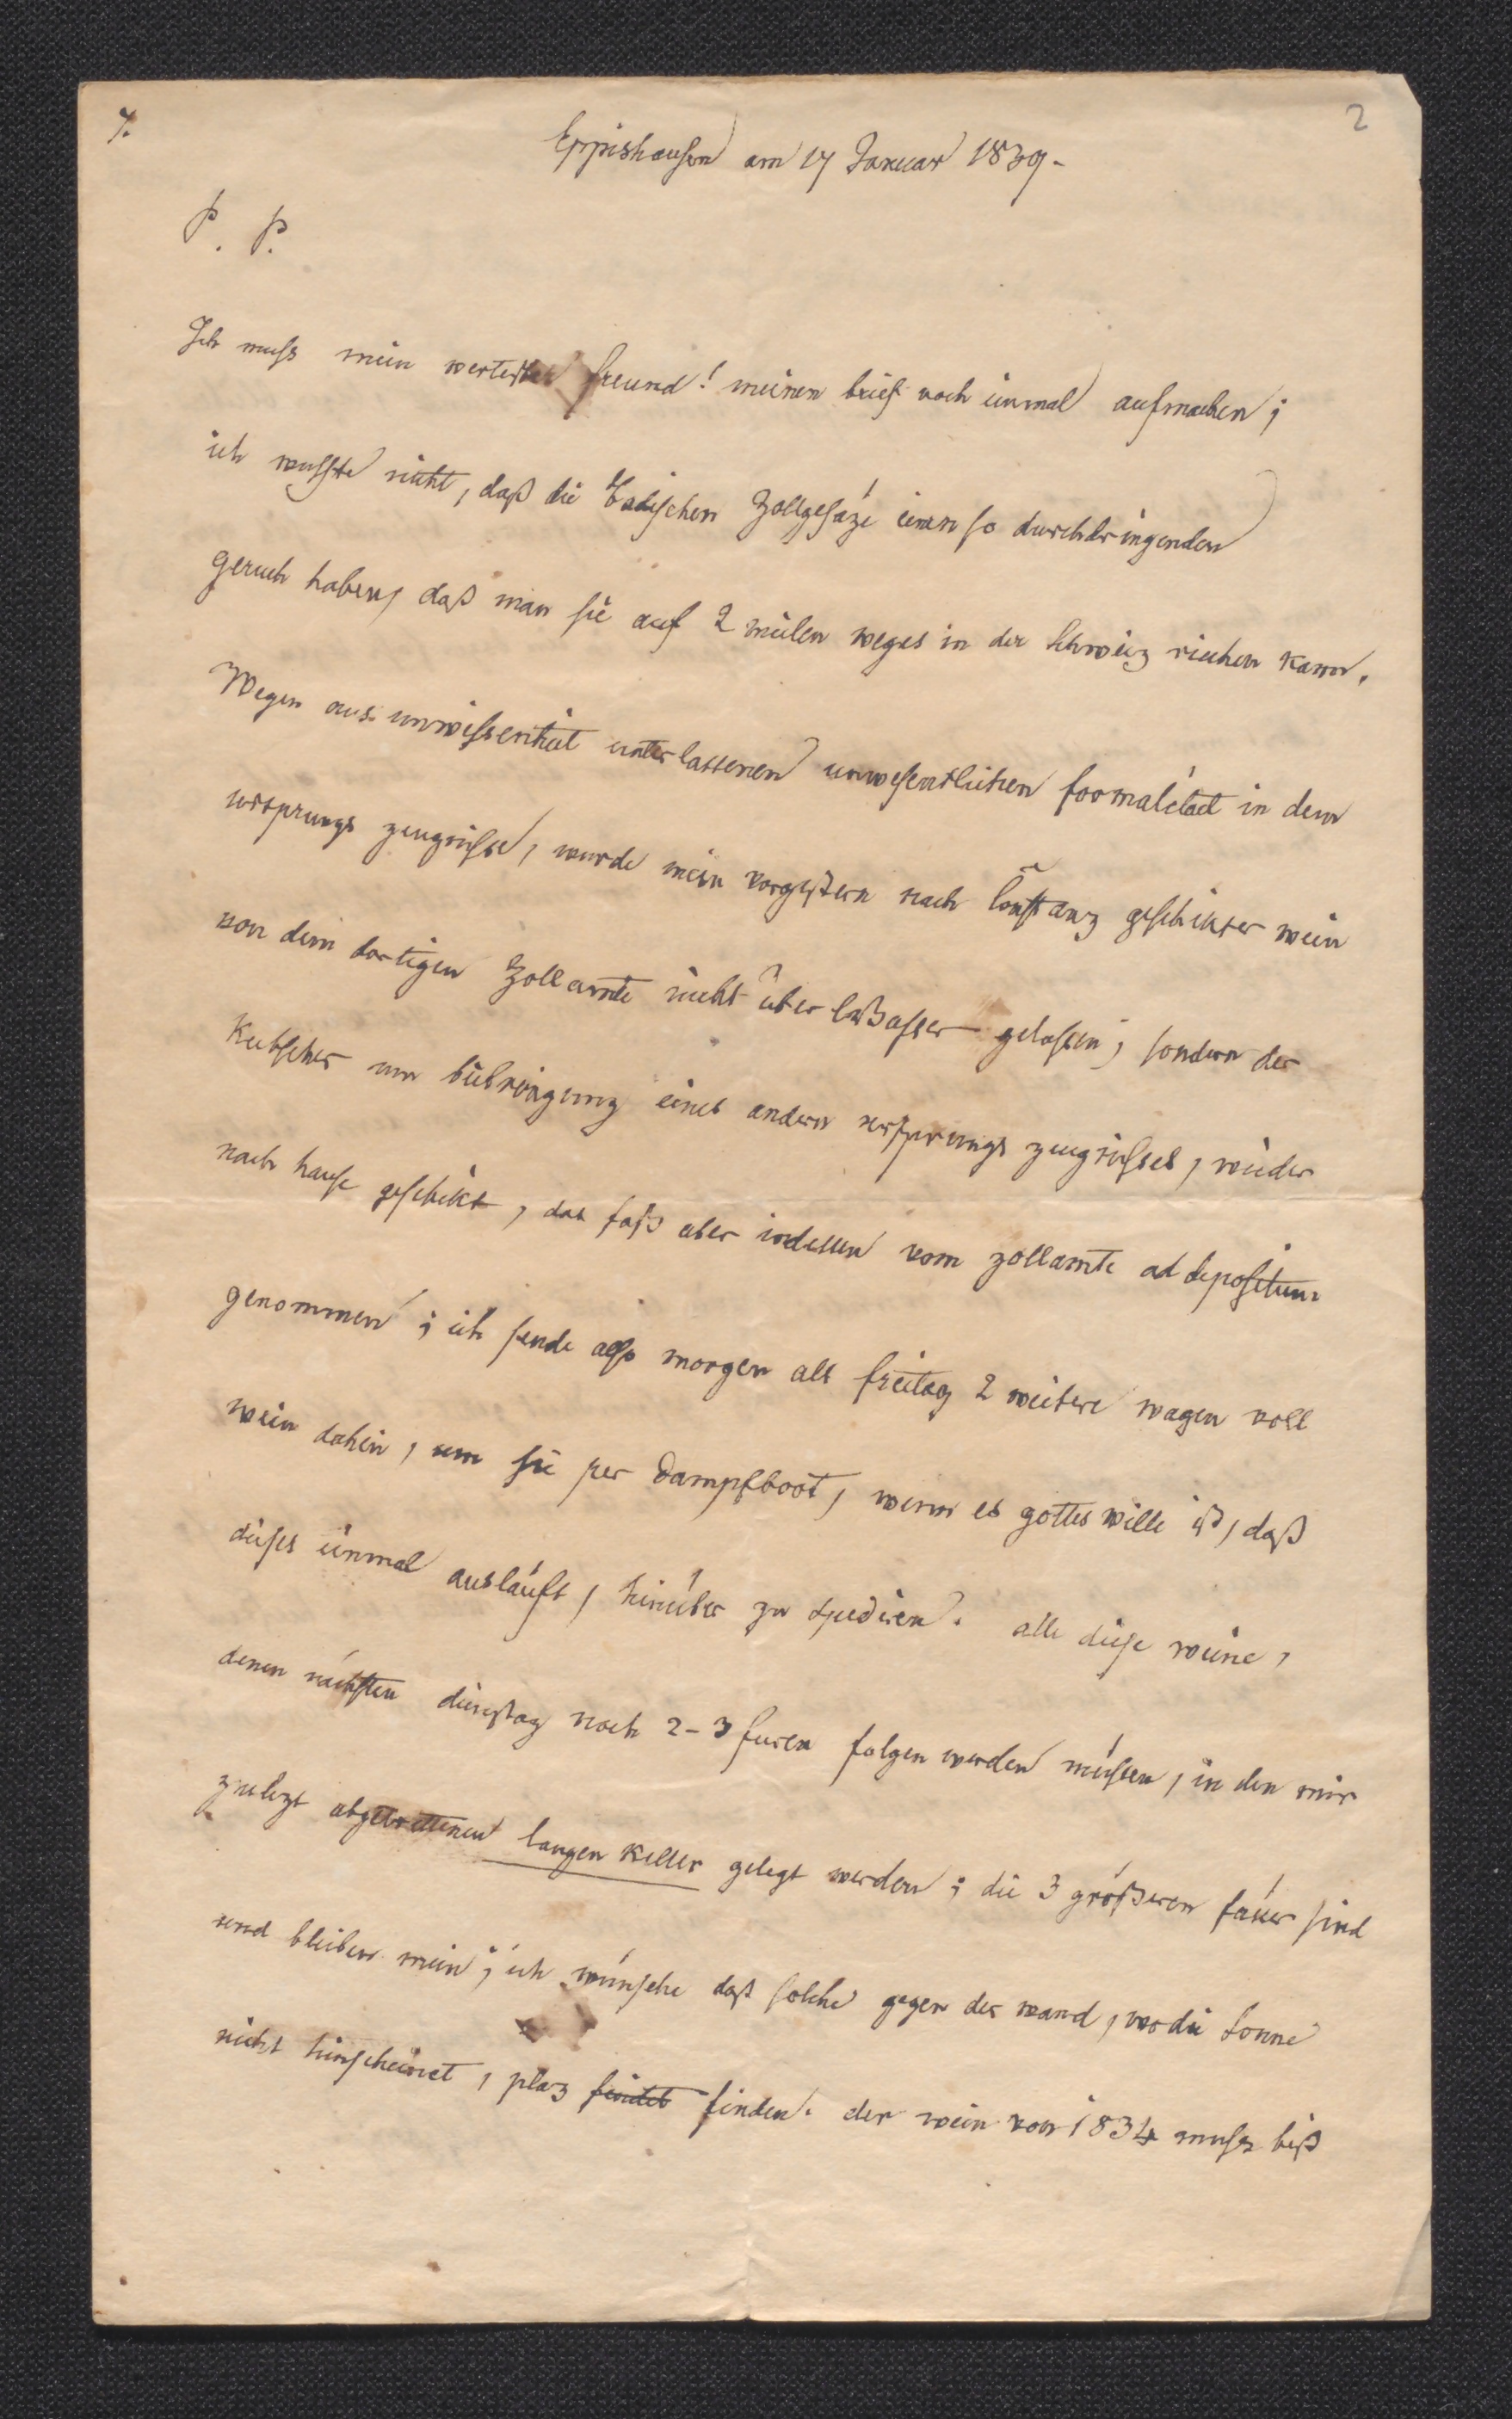 7.
2
Eppishausen am 17 Januar 1839.
P. P.
Ich muss mein wertester freund! meinen brief noch einmal aufmachen;
ich wusste nicht, daß die Badischen Zollgesäze einen so durchdringenden
geruch haben, daß man sie auf 2 meilen weges in der Schweiz riechen kann.
Wegen aus unwissenheit unterlassenen unwesentlichen formalität in dem
ursprungs zeugnisse, wurde mein vorgestern nach Constanz geschikter wein
von dem dortigen Zollamte nicht über gelassen; sondern der
Kutscher um beibringung eines andern ursprungs zeugnisses, wieder
nach hause geschikt, das faß aber indessen vom zollamte ad depositum
genommen; ich sende also morgen als freitag 2 weitere wagen voll
wein dahin, um sie per Dampfboot, wenn es gottes wille ist, daß
dieses einmal ausläuft, hinüber zu spediren. alle diese weine,
denen nächsten dienstag noch 2-3 furen folgen werden müssen, in den mir
zulezt abgetrettenen langen keller gelegt werden; die 3 größeren fässer sind
und bleiben mein; ich wünsche daß solche gegen der wand, wo die Sonne
nicht hinscheinet, plaz findet finden. der wein von 1834 muss biß